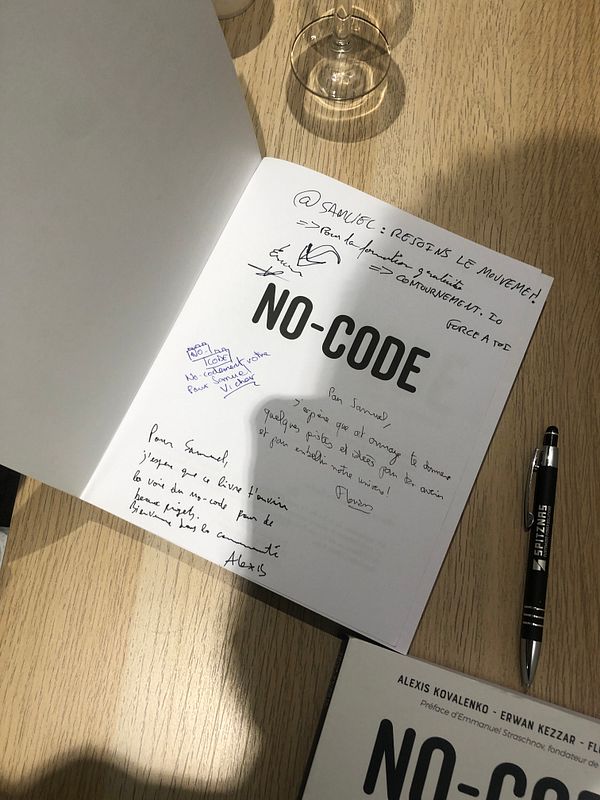 @SAMUEL : REJOINS LE MOUVEMENT!
=> Pour la formation gratuite
=> CONTOURNEMENT.IO
FORCE A TOI
Erwan
NO-CODE
NO-
CODE
No-codement votre
Pour Samuel
Pour Samuel,
j'espère que cet ouvrage te donnera
quelques pistes et idées pour ton avenir
et pour embellir notre univers!
Florian
Pour Samuel,
j'espère que ce livre t'ouvrira
la voie du no-code pour de
beaux projets.
Bienvenue dans la communauté
Alexis
SPITZNAS
ALEXIS KOVALENKO - ERWAN KEZZAR - FL
Préface d'Emmanuel Straschnov, fondateur de
NO-CO